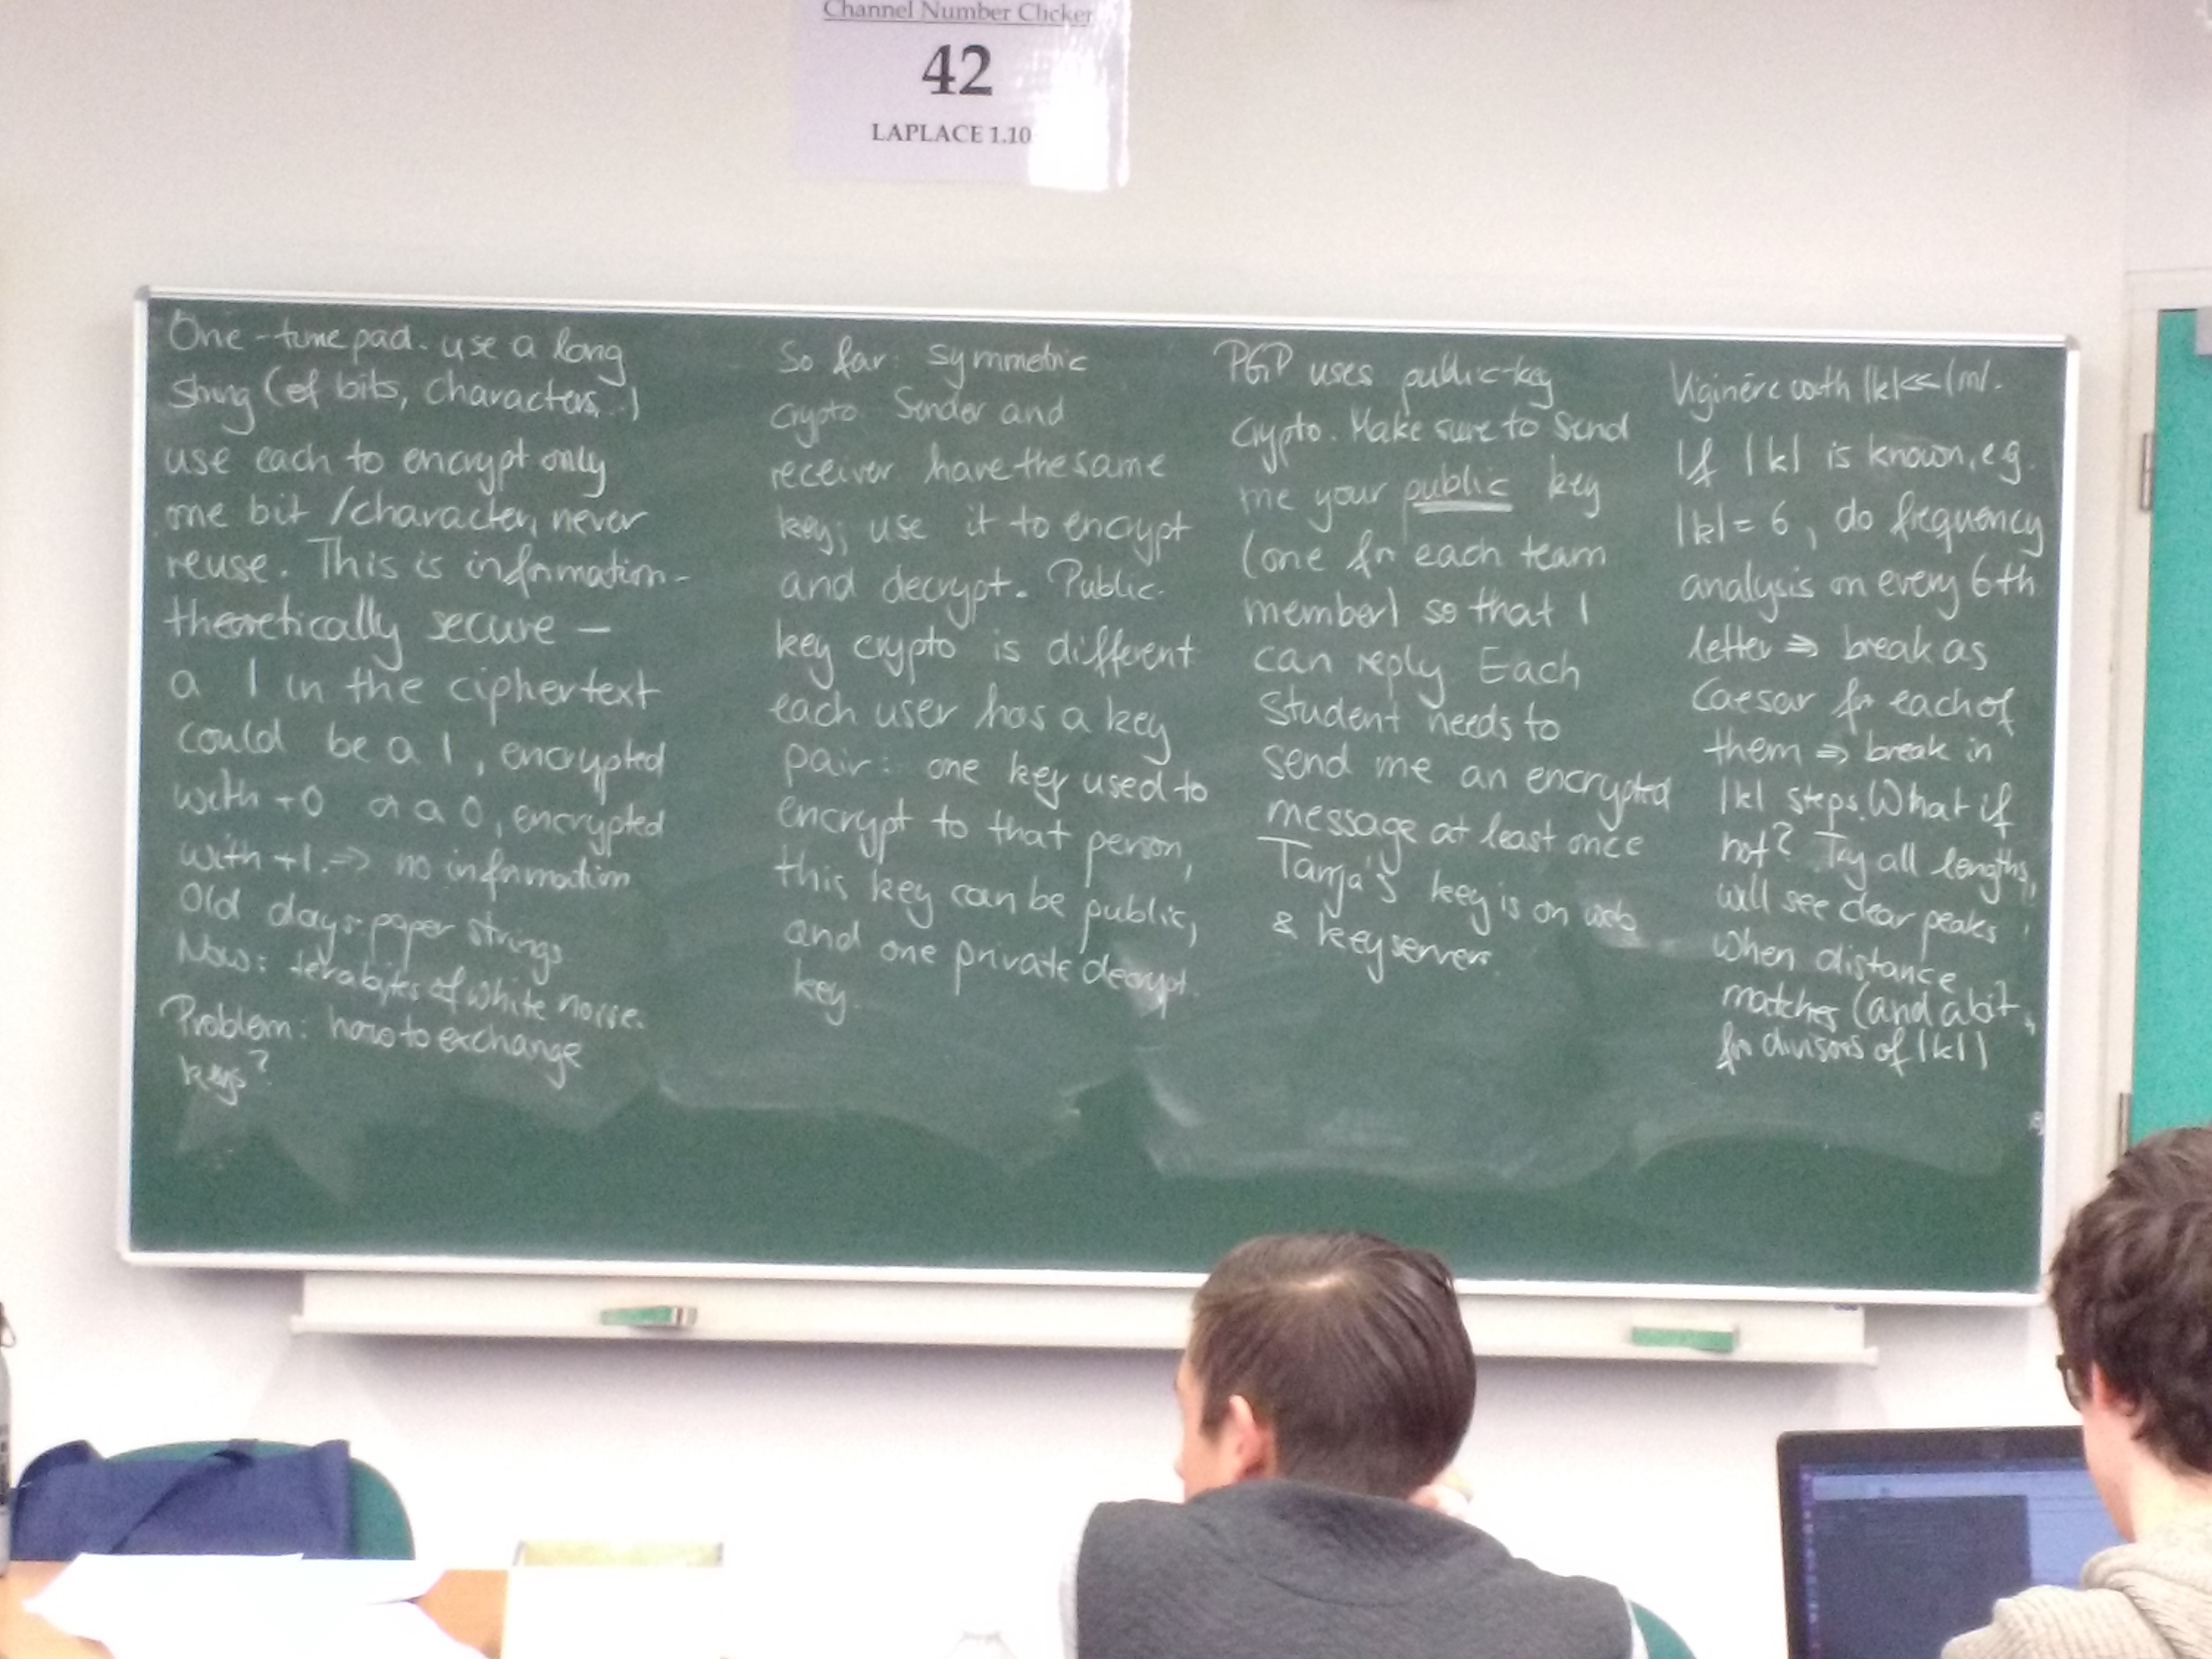 Channel Number Clicker
42
LAPLACE 1.10
One-time pad. use a long
string (of bits, characters, ..)
use each to encrypt only
one bit /character, never
reuse. This is information-
theoretically secure –
a 1 in the ciphertext
could be a 1, encrypted
with +0 or a 0, encrypted
with +1. ⇒ no information
Old days: paper strings
Now: terabytes of white noise.
Problem: how to exchange
keys?
So far: symmetric
crypto Sender and
receiver have the same
key; use it to encrypt
and decrypt. Public-
key crypto is different
each user has a key
pair: one key used to
encrypt to that person,
this key can be public,
and one private decrypt.
key.
PGP uses public-key
crypto. Make sure to send
me your public key
(one for each team
member) so that I
can reply Each
student needs to
send me an encrypted
message at least once
Tanja's key is on web
& keyservers.
Viginère with |k|<<|m|.
If |k| is known, e.g.
|k| = 6, do frequency
analysis on every 6th
letter ⇒ break as
Caesar for each of
them ⇒ break in
|k| steps. What if
not? Try all lengths,
will see clear peaks
when distance
matches (and a bit
for divisors of |k|)